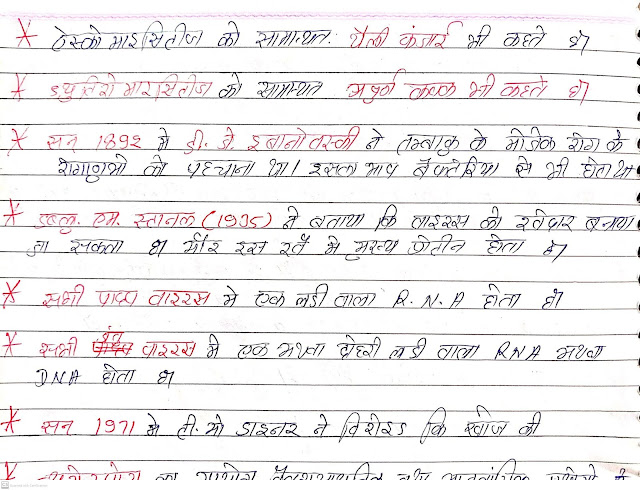 * ऐस्कोमाइसिटीज को सामान्यत: थैली कंवाई भी कहते है।
* ड्युतिरोमाइसिटीज को सामान्यत अपूर्ण कवक भी कहते है।
* सन 1892 मे डी. जे. इबानोवस्की ने तम्बाकु के मोजेक रोग के
रोगाणुओ को पहचाना था। इसका माप बैक्टेरिया से भी छोटा था
* डब्लु. एम. स्तानल (1935) ने बताया कि वाइरस को रवेदार बनाया
जा सकता है और इस रवे मे मुख्य प्रोटीन होता है।
* सभी पादप वाइरस मे एक लडी वाला R.N.A होता है।
* सभी जंतु वाइरस मे एक अथवा दोहरी लडी वाला RNA अथवा
DNA होता है।
* सन 1971 मे टी. ओ डाइनर ने विरोइड कि खोज की
का